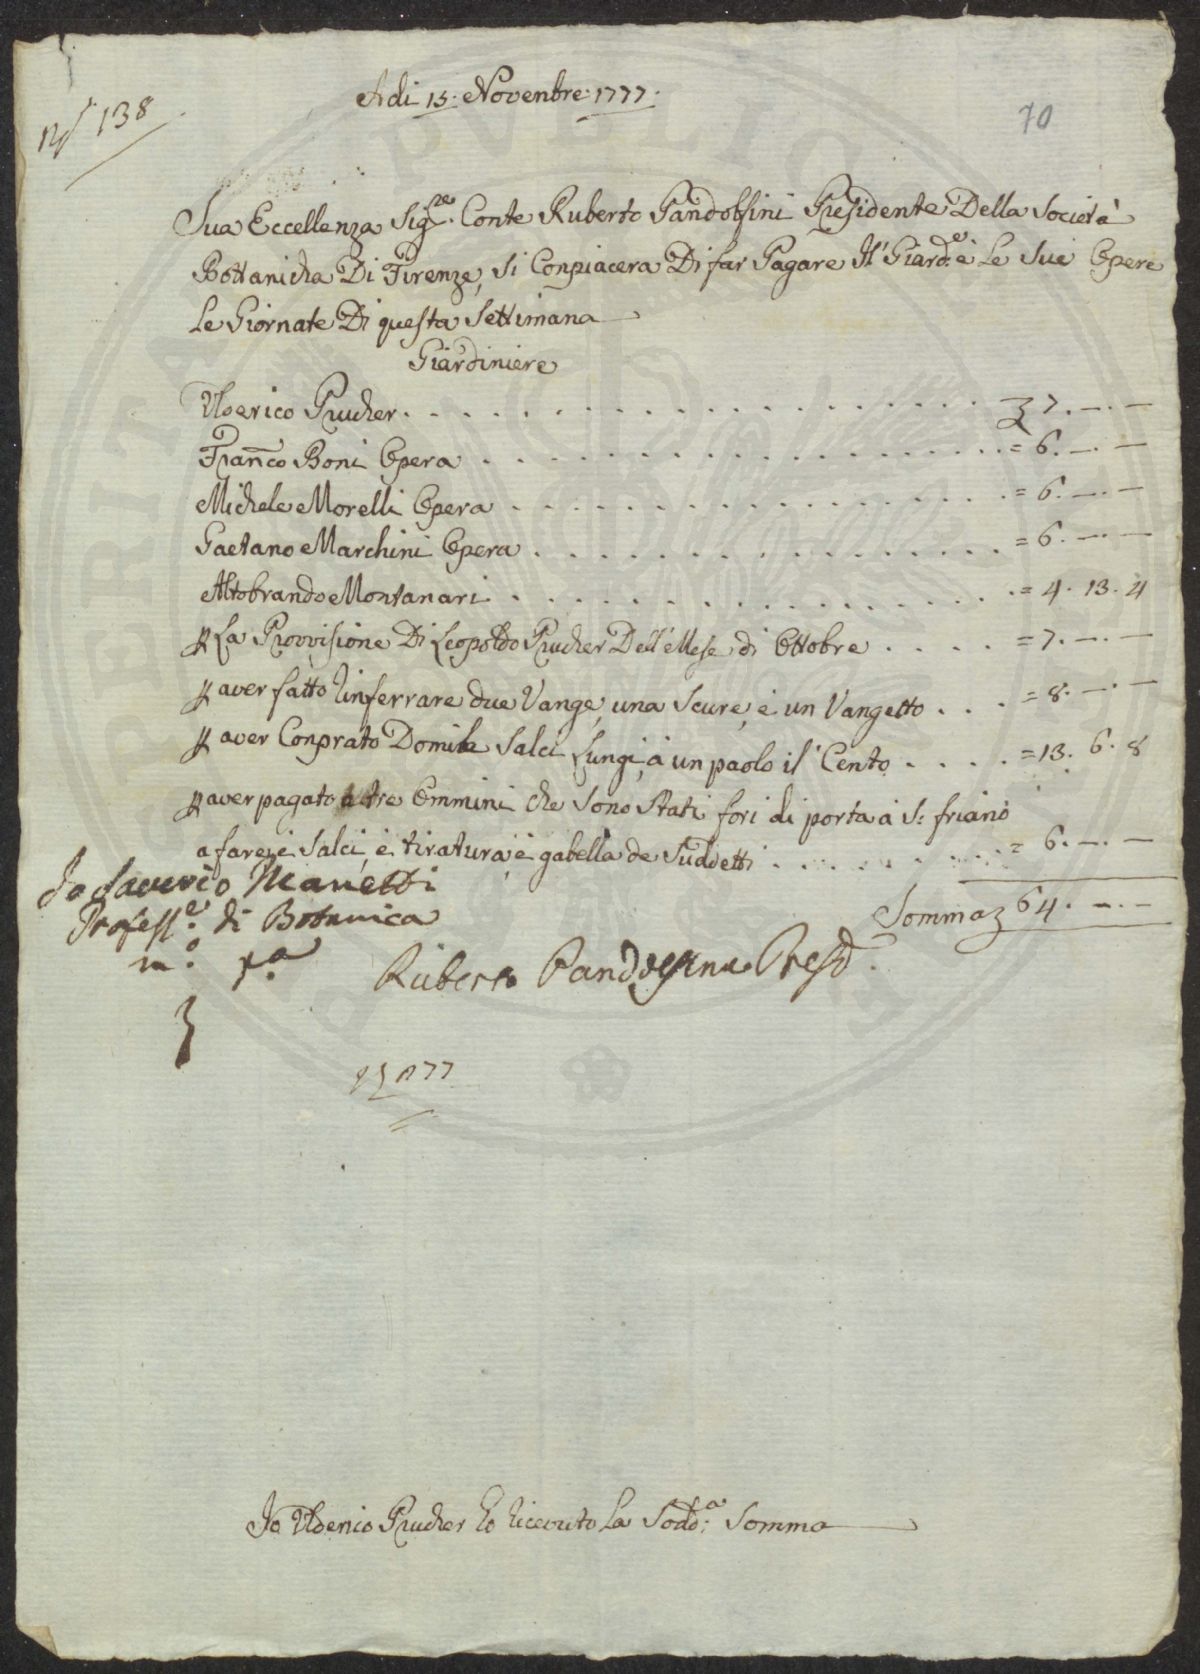 Adi 15. Novenbre 1777.
N.° 138
70
Sua Eccellenza Sig.re Conte Ruberto Pandolfini Presidente Della Società
Bottanicha Di Firenze, Si Conpiacera Di far Pagare Il Giard.e è Le Sue Opere
Le Giornate Di questa Settimana
Giardiniere
Ulderico Prucher . . . 7. — . —
Franco Boni Opera . . . = 6. — . —
Michele Morelli Opera . . . = 6. — . —
Gaetano Marchini Opera . . . = 6. — . —
Altobrando Montanari . . . = 4. 13. 4
P La Provvisione Di Leopoldo Prucher Dell' Mese di Ottobre . . . = 7. — . —
P aver fatto Rinferrare due Vange, una Scure, è un Vangetto . . . = 8. — . —
P aver Conprato Domila Salci Lungi, à un paolo il Cento . . . = 13. 6. 8
P aver pagato a tre Ommini che Sono Stati fori di porta à S: friano
a fare i Salci, è tiratura, è gabella de Suddetti . . . = 6. — . —
Somma 64. — . —
Io Saverio Manetti
Profess.e di Botanica
m.o p.a
Ruberto Pandolfini Presid.
Io Ulderico Prucher ho Riceuto La Sodd.a Somma